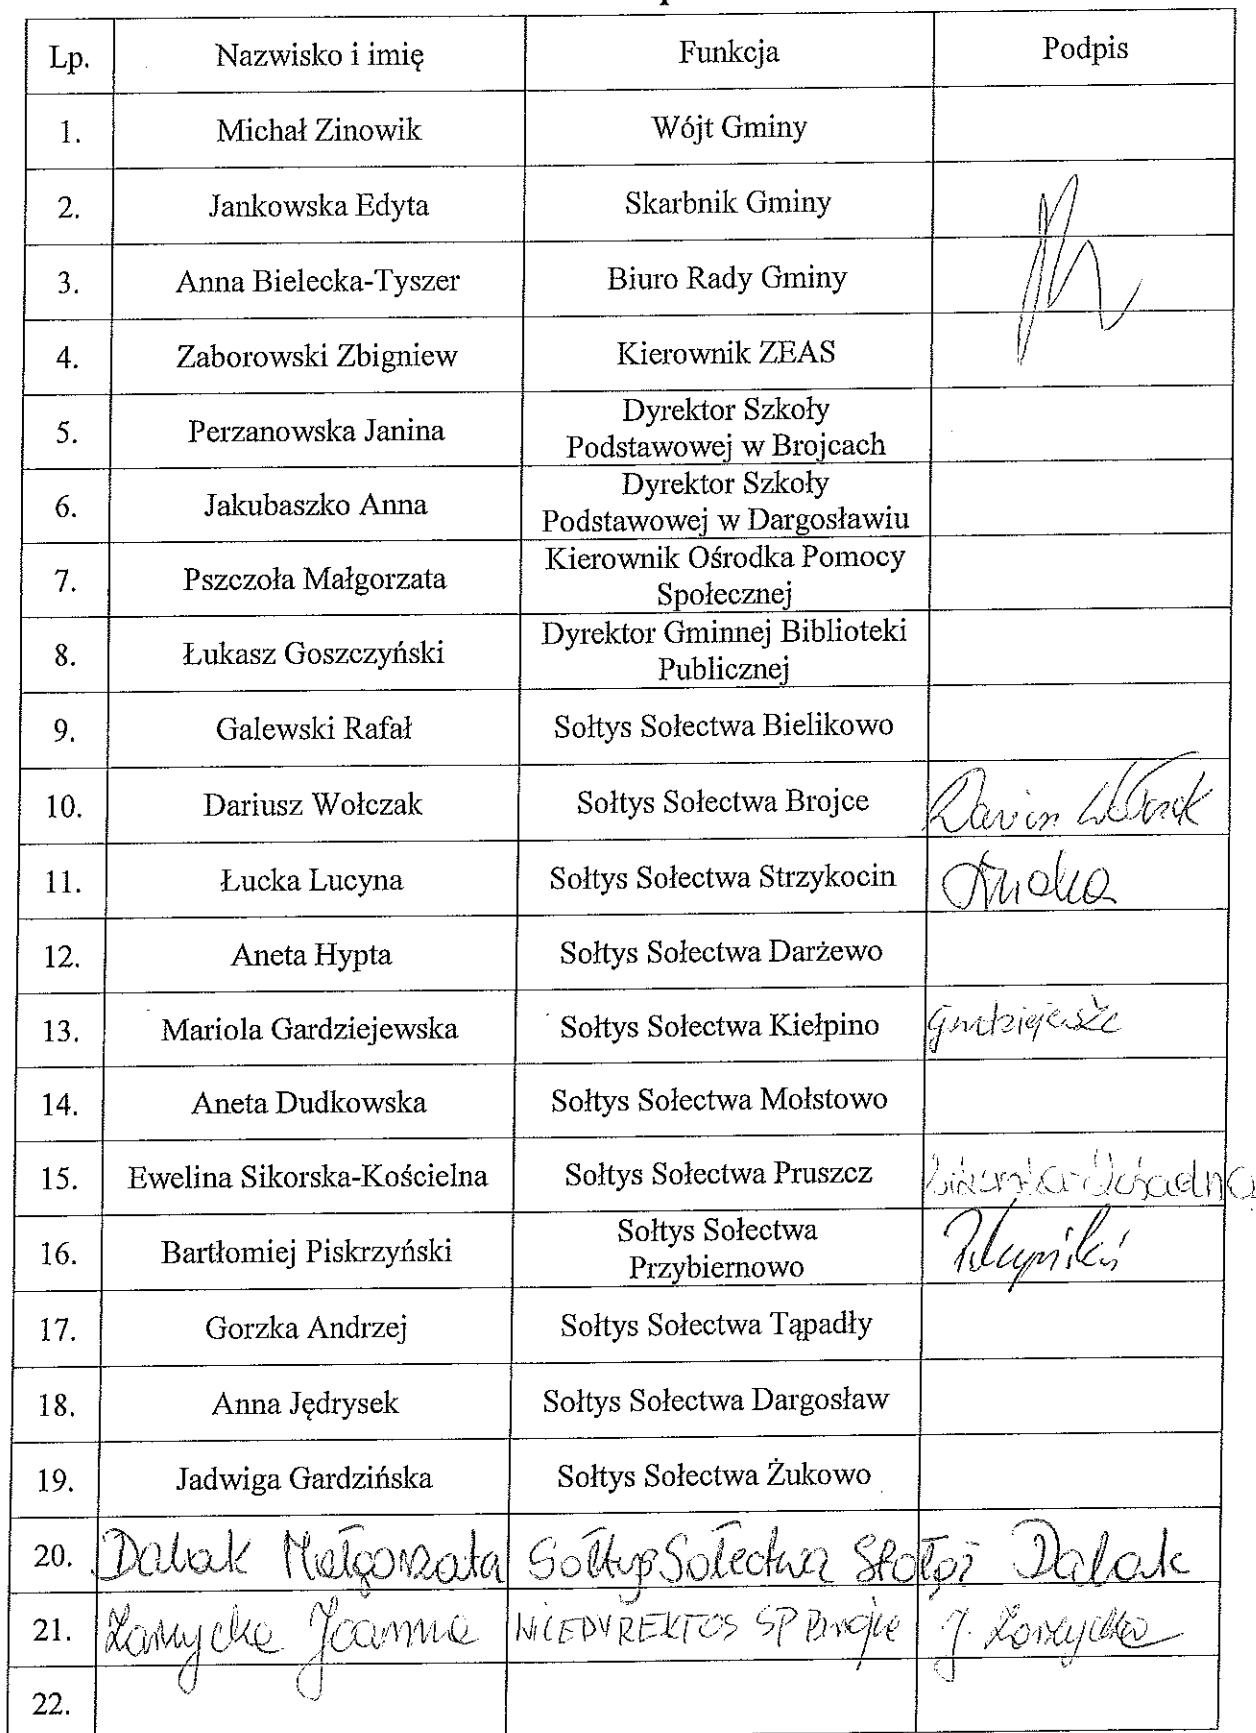 Lp. Nazwisko i imię Funkcja Podpis
1. Michał Zinowik Wójt Gminy
2. Jankowska Edyta Skarbnik Gminy
3. Anna Bielecka-Tyszer Biuro Rady Gminy
4. Zaborowski Zbigniew Kierownik ZEAS
5. Perzanowska Janina Dyrektor Szkoły
Podstawowej w Brojcach
6. Jakubaszko Anna Dyrektor Szkoły
Podstawowej w Dargosławiu
7. Pszczoła Małgorzata Kierownik Ośrodka Pomocy
Społecznej
8. Łukasz Goszczyński Dyrektor Gminnej Biblioteki
Publicznej
9. Galewski Rafał Sołtys Sołectwa Bielikowo
10. Dariusz Wołczak Sołtys Sołectwa Brojce
11. Łucka Lucyna Sołtys Sołectwa Strzykocin
12. Aneta Hypta Sołtys Sołectwa Darżewo
13. Mariola Gardziejewska Sołtys Sołectwa Kiełpino
14. Aneta Dudkowska Sołtys Sołectwa Mołstowo
15. Ewelina Sikorska-Kościelna Sołtys Sołectwa Pruszcz
16. Bartłomiej Piskrzyński Sołtys Sołectwa
Przybiernowo
17. Gorzka Andrzej Sołtys Sołectwa Tąpadły
18. Anna Jędrysek Sołtys Sołectwa Dargosław
19. Jadwiga Gardzińska Sołtys Sołectwa Żukowo
20. Dabak Małgorzata Sołtys Sołectwa Stołąż Dabak
21. Joanna WICEDYREKTOR SP Brojce J.
22.